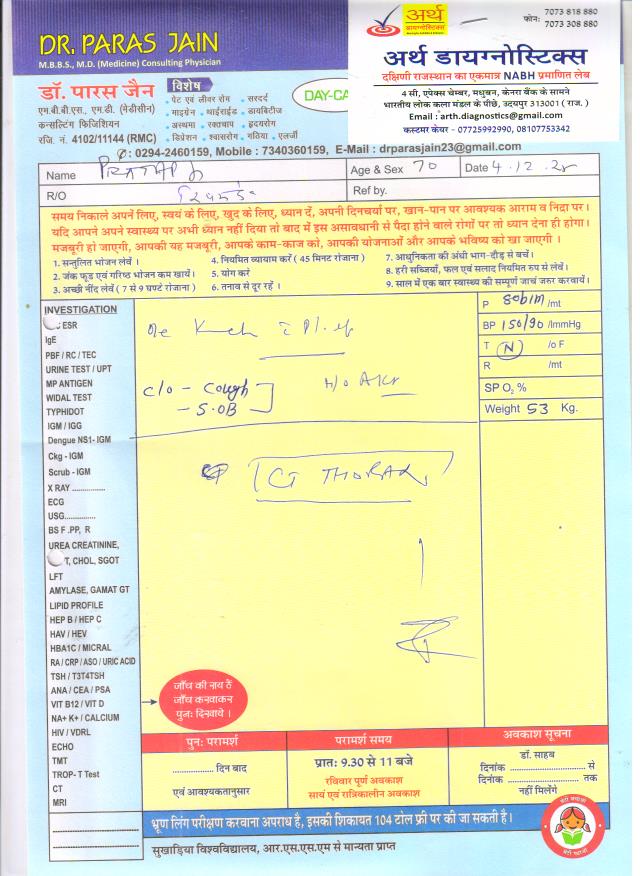 DR. PARAS JAIN
M.B.B.S., M.D. (Medicine) Consulting Physician
डॉ. पारस जैन
एम.बी.बी.एस., एम.डी. (मेडीसीन)
कन्सल्टिंग फिजिशियन
रजि. नं. 4102/11144 (RMC)
विशेष
• पेट एवं लीवर रोग • सरदर्द
• माइग्रेन • थाईराईड • डायबिटीज
• अस्थमा • रक्तचाप • हृदयरोग
• डिप्रेशन • श्वासरोग • गठिया • एलर्जी
DAY-CA
अर्थ
फोन: 7073 818 880
7073 308 880
अर्थ डायग्नोस्टिक्स
दक्षिणी राजस्थान का एकमात्र NABH प्रमाणित लेब
4 सी, एपेक्स चेम्बर, मधुबन, केनरा बैंक के सामने
भारतीय लोक कला मंडल के पीछे, उदयपुर 313001 ( राज. )
Email : arth.diagnostics@gmail.com
कस्टमर केयर - 07725992990, 08107753342
: 0294-2460159, Mobile : 7340360159, E-Mail : drparasjain23@gmail.com
Name PRATAP Age & Sex 70 Date 4.12.25
R/O Ref by.
समय निकाले अपने लिए, स्वयं के लिए, खुद के लिए, ध्यान दें, अपनी दिनचर्या पर, खान-पान पर आवश्यक आराम व निद्रा पर।
यदि आपने अपने स्वास्थ्य पर अभी ध्यान नहीं दिया तो बाद में इस असावधानी से पैदा होने वाले रोगों पर तो ध्यान देना ही होगा।
मजबूरी हो जाएगी, आपकी यह मजबूरी, आपके काम-काज को, आपकी योजनाओं और आपके भविष्य को खा जाएगी ।
1. सन्तुलित भोजन लेवें । 4. नियमित व्यायाम करें ( 45 मिनट रोजाना ) 7. आधुनिकता की अंधी भाग-दौड़ से बचें।
2. जंक फूड एवं गरिष्ठ भोजन कम खायें। 5. योग करें 8. हरी सब्जियाँ, फल एवं सलाद नियमित रुप से लेवें।
3. अच्छी नींद लेवें ( 7 से 9 घण्टे रोजाना ) 6. तनाव से दूर रहें । 9. साल में एक बार स्वास्थ्य की सम्पूर्ण जाचं जरुर करवायें।
INVESTIGATION
ESR
IgE
PBF / RC / TEC
URINE TEST / UPT
MP ANTIGEN
WIDAL TEST
TYPHIDOT
IGM / IGG
Dengue NS1- IGM
Ckg - IGM
Scrub - IGM
X RAY ...............
ECG
USG...............
BS F .PP, R
UREA CREATININE,
T, CHOL, SGOT
LFT
AMYLASE, GAMAT GT
LIPID PROFILE
HEP B / HEP C
HAV / HEV
HBA1C / MICRAL
RA / CRP / ASO / URIC ACID
TSH / T3T4TSH
ANA / CEA / PSA
VIT B12 / VIT D
NA+ K+ / CALCIUM
HIV / VDRL
ECHO
TMT
TROP- T Test
CT
MRI
C/O - Cough
- S.OB
CT THORAX
P 80b/m /mt
BP 150/90 /ImmHg
T N /o F
R /mt
SP O₂ %
Weight 53 Kg.
जाँच की राय है
जाँच करवाकर
पुनः दिखाये ।
पुनः परामर्श
............... दिन बाद
एवं आवश्यकतानुसार
परामर्श समय
प्रातः 9.30 से 11 बजे
रविवार पूर्ण अवकाश
सायं एवं रात्रिकालीन अवकाश
अवकाश सूचना
डॉ. साहब
दिनांक ............... से
दिनांक ............... तक
नहीं मिलेंगे
भ्रूण लिंग परीक्षण करवाना अपराध है, इसकी शिकायत 104 टोल फ्री पर की जा सकती है।
सुखाड़िया विश्वविद्यालय, आर.एस.एस.एम से मान्यता प्राप्त